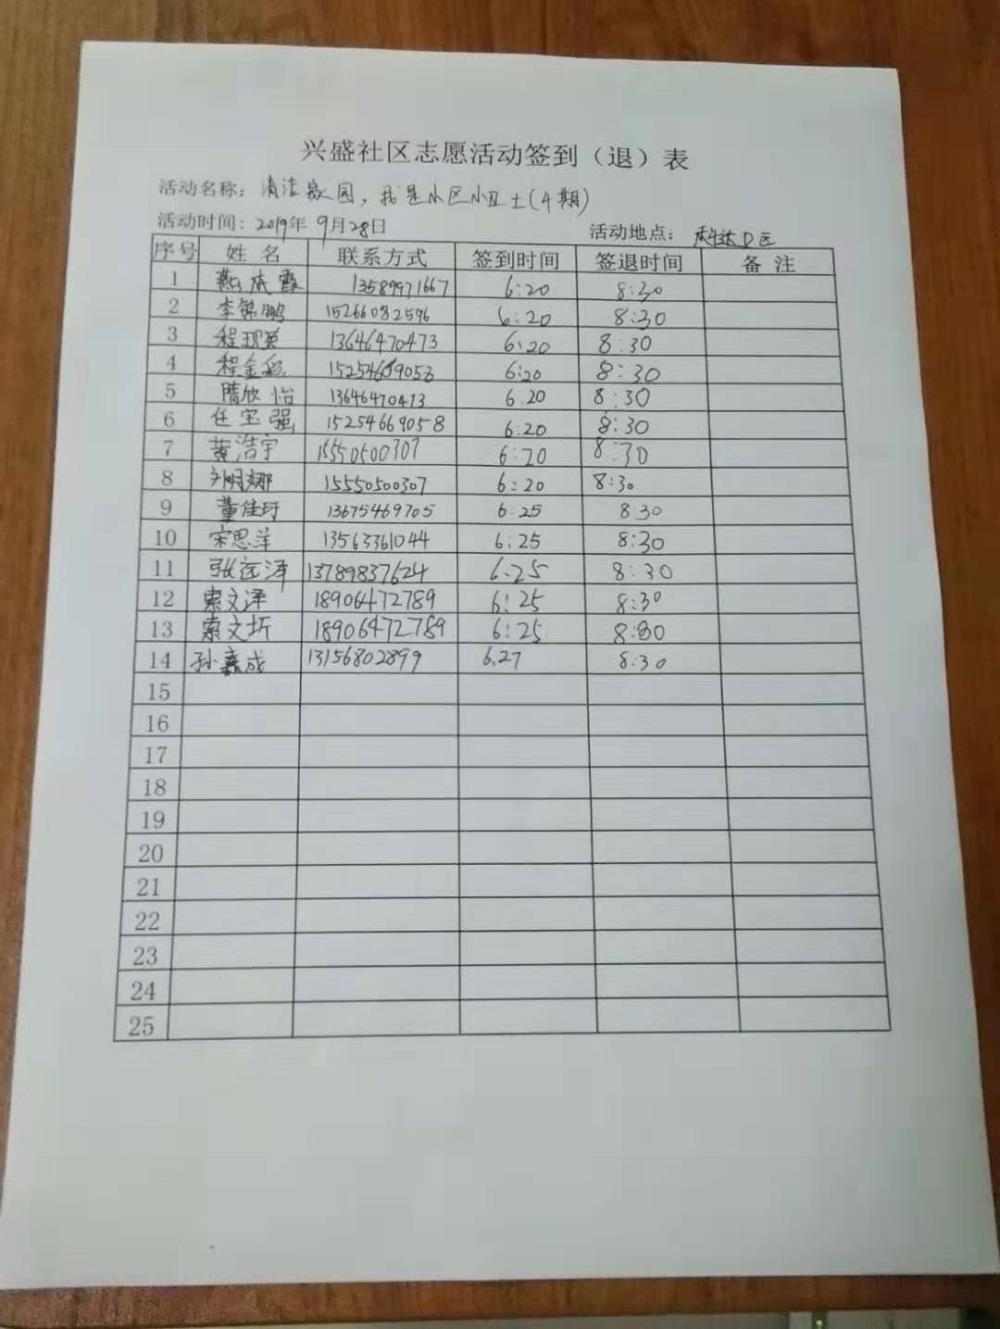 兴盛社区志愿活动签到（退）表
活动名称：清洁家园，我是小区小卫士(4期)
活动时间：2019年9月28日 活动地点：D区
序号 姓名 联系方式 签到时间 签退时间 备注
1 霞 13589971667 6:20 8:30
2 李锦鹏 15266082596 6:20 8:30
3 程现英 13646470473 6:20 8:30
4 程金 15254669058 6:20 8:30
5 隋欣怡 13646470473 6.20 8:30
6 任宝强 15254669058 6:20 8:30
7 黄浩宇 15550500307 6:20 8:30
8 娜 15550500307 6:20 8:30
9 董佳 13675469705 6:25 8 30
10 宋思萍 13563361044 6:25 8:30
11 张 泽 13789837624 6.25 8:30
12 索文泽 18906472789 6:25 8:30
13 索文圻 18906472789 6:25 8:30
14 孙嘉成 13156802899 6.27 8:30
15
16
17
18
19
20
21
22
23
24
25